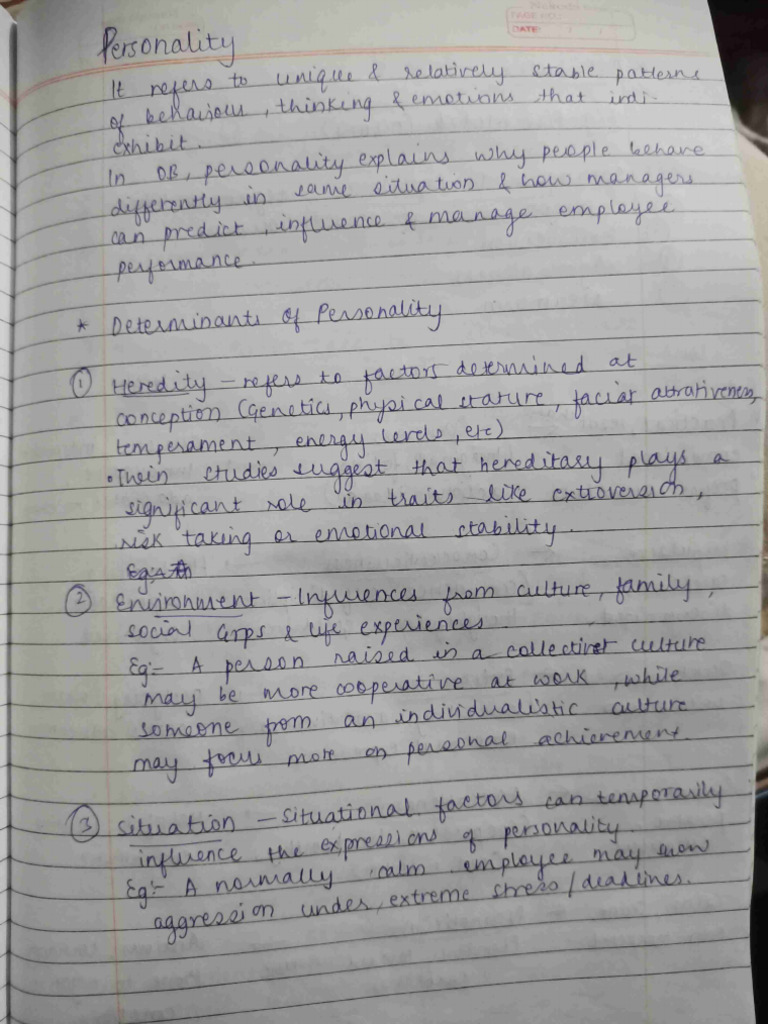 PAGE NO.:
DATE: / /
Personality
It refers to unique & relatively stable patterns
of behaviour, thinking & emotions that indi.
exhibit.
In OB, personality explains why people behave
differently in same situation & how managers
can predict, influence & manage employee
performance.
* Determinants of Personality
① Heredity – refers to factors determined at
conception (Genetics, physical stature, facial attrativeness,
temperament, energy levels, etc)
• Twin studies suggest that hereditary plays a
significant role in traits like extroversion,
risk taking or emotional stability.
Eg:-
② Environment – Influences from culture, family,
social Grps & life experiences
Eg:- A person raised in a collectivist culture
may be more cooperative at work, while
someone from an individualistic culture
may focus more on personal achievement.
③ Situation – Situational factors can temporarily
influence the expressions of personality.
Eg:- A normally calm employee may show
aggression under, extreme stress/deadlines.